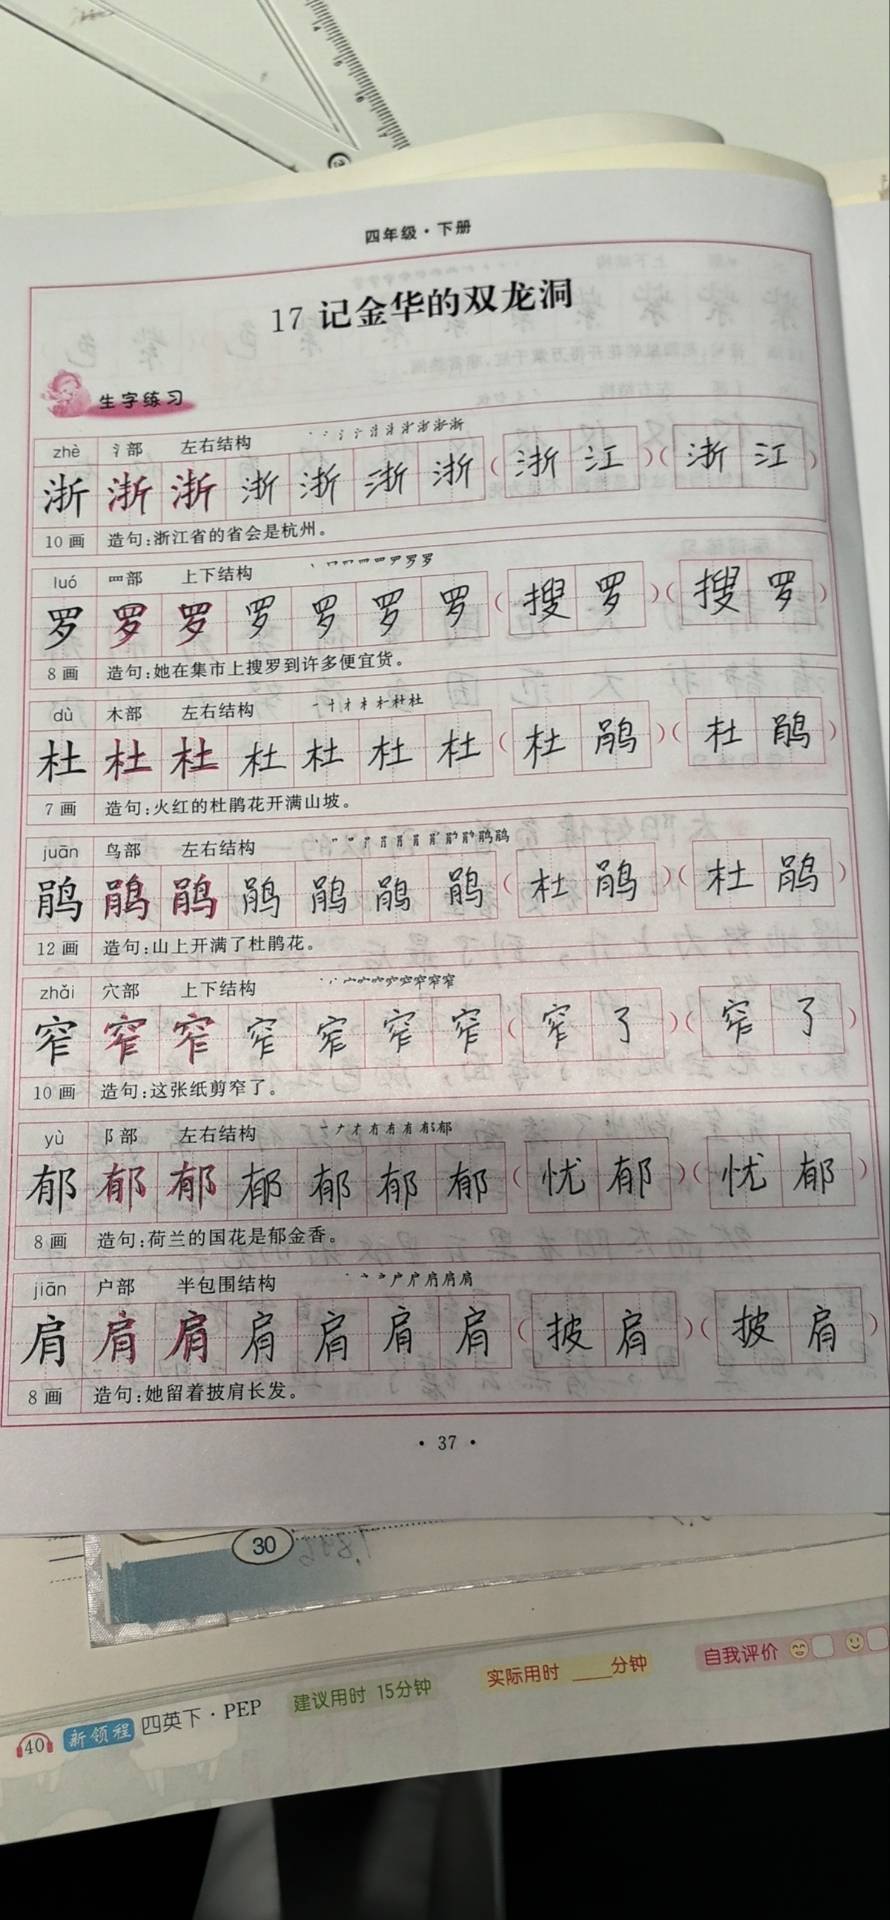 四年级·下册
17 记金华的双龙洞
生字练习
zhè 氵部 左右结构
浙 浙 浙 浙 浙 浙 浙 (浙 江)(浙 江)
10 画 造句:浙江省的省会是杭州。
luó 罒部 上下结构
罗 罗 罗 罗 罗 罗 罗 (搜 罗)(搜 罗)
8 画 造句:她在集市上搜罗到许多便宜货。
dù 木部 左右结构
杜 杜 杜 杜 杜 杜 杜 (杜 鹃)(杜 鹃)
7 画 造句:火红的杜鹃花开满山坡。
juān 鸟部 左右结构
鹃 鹃 鹃 鹃 鹃 鹃 鹃 (杜 鹃)(杜 鹃)
12 画 造句:山上开满了杜鹃花。
zhǎi 穴部 上下结构
窄 窄 窄 窄 窄 窄 窄 (窄 了)(窄 了)
10 画 造句:这张纸剪窄了。
yù 阝部 左右结构
郁 郁 郁 郁 郁 郁 郁 (忧 郁)(忧 郁)
8 画 造句:荷兰的国花是郁金香。
jiān 户部 半包围结构
肩 肩 肩 肩 肩 肩 肩 (披 肩)(披 肩)
8 画 造句:她留着披肩长发。
·37·
30
40 新领程 四英下·PEP 建议用时 15分钟 实际用时 ____分钟 自我评价